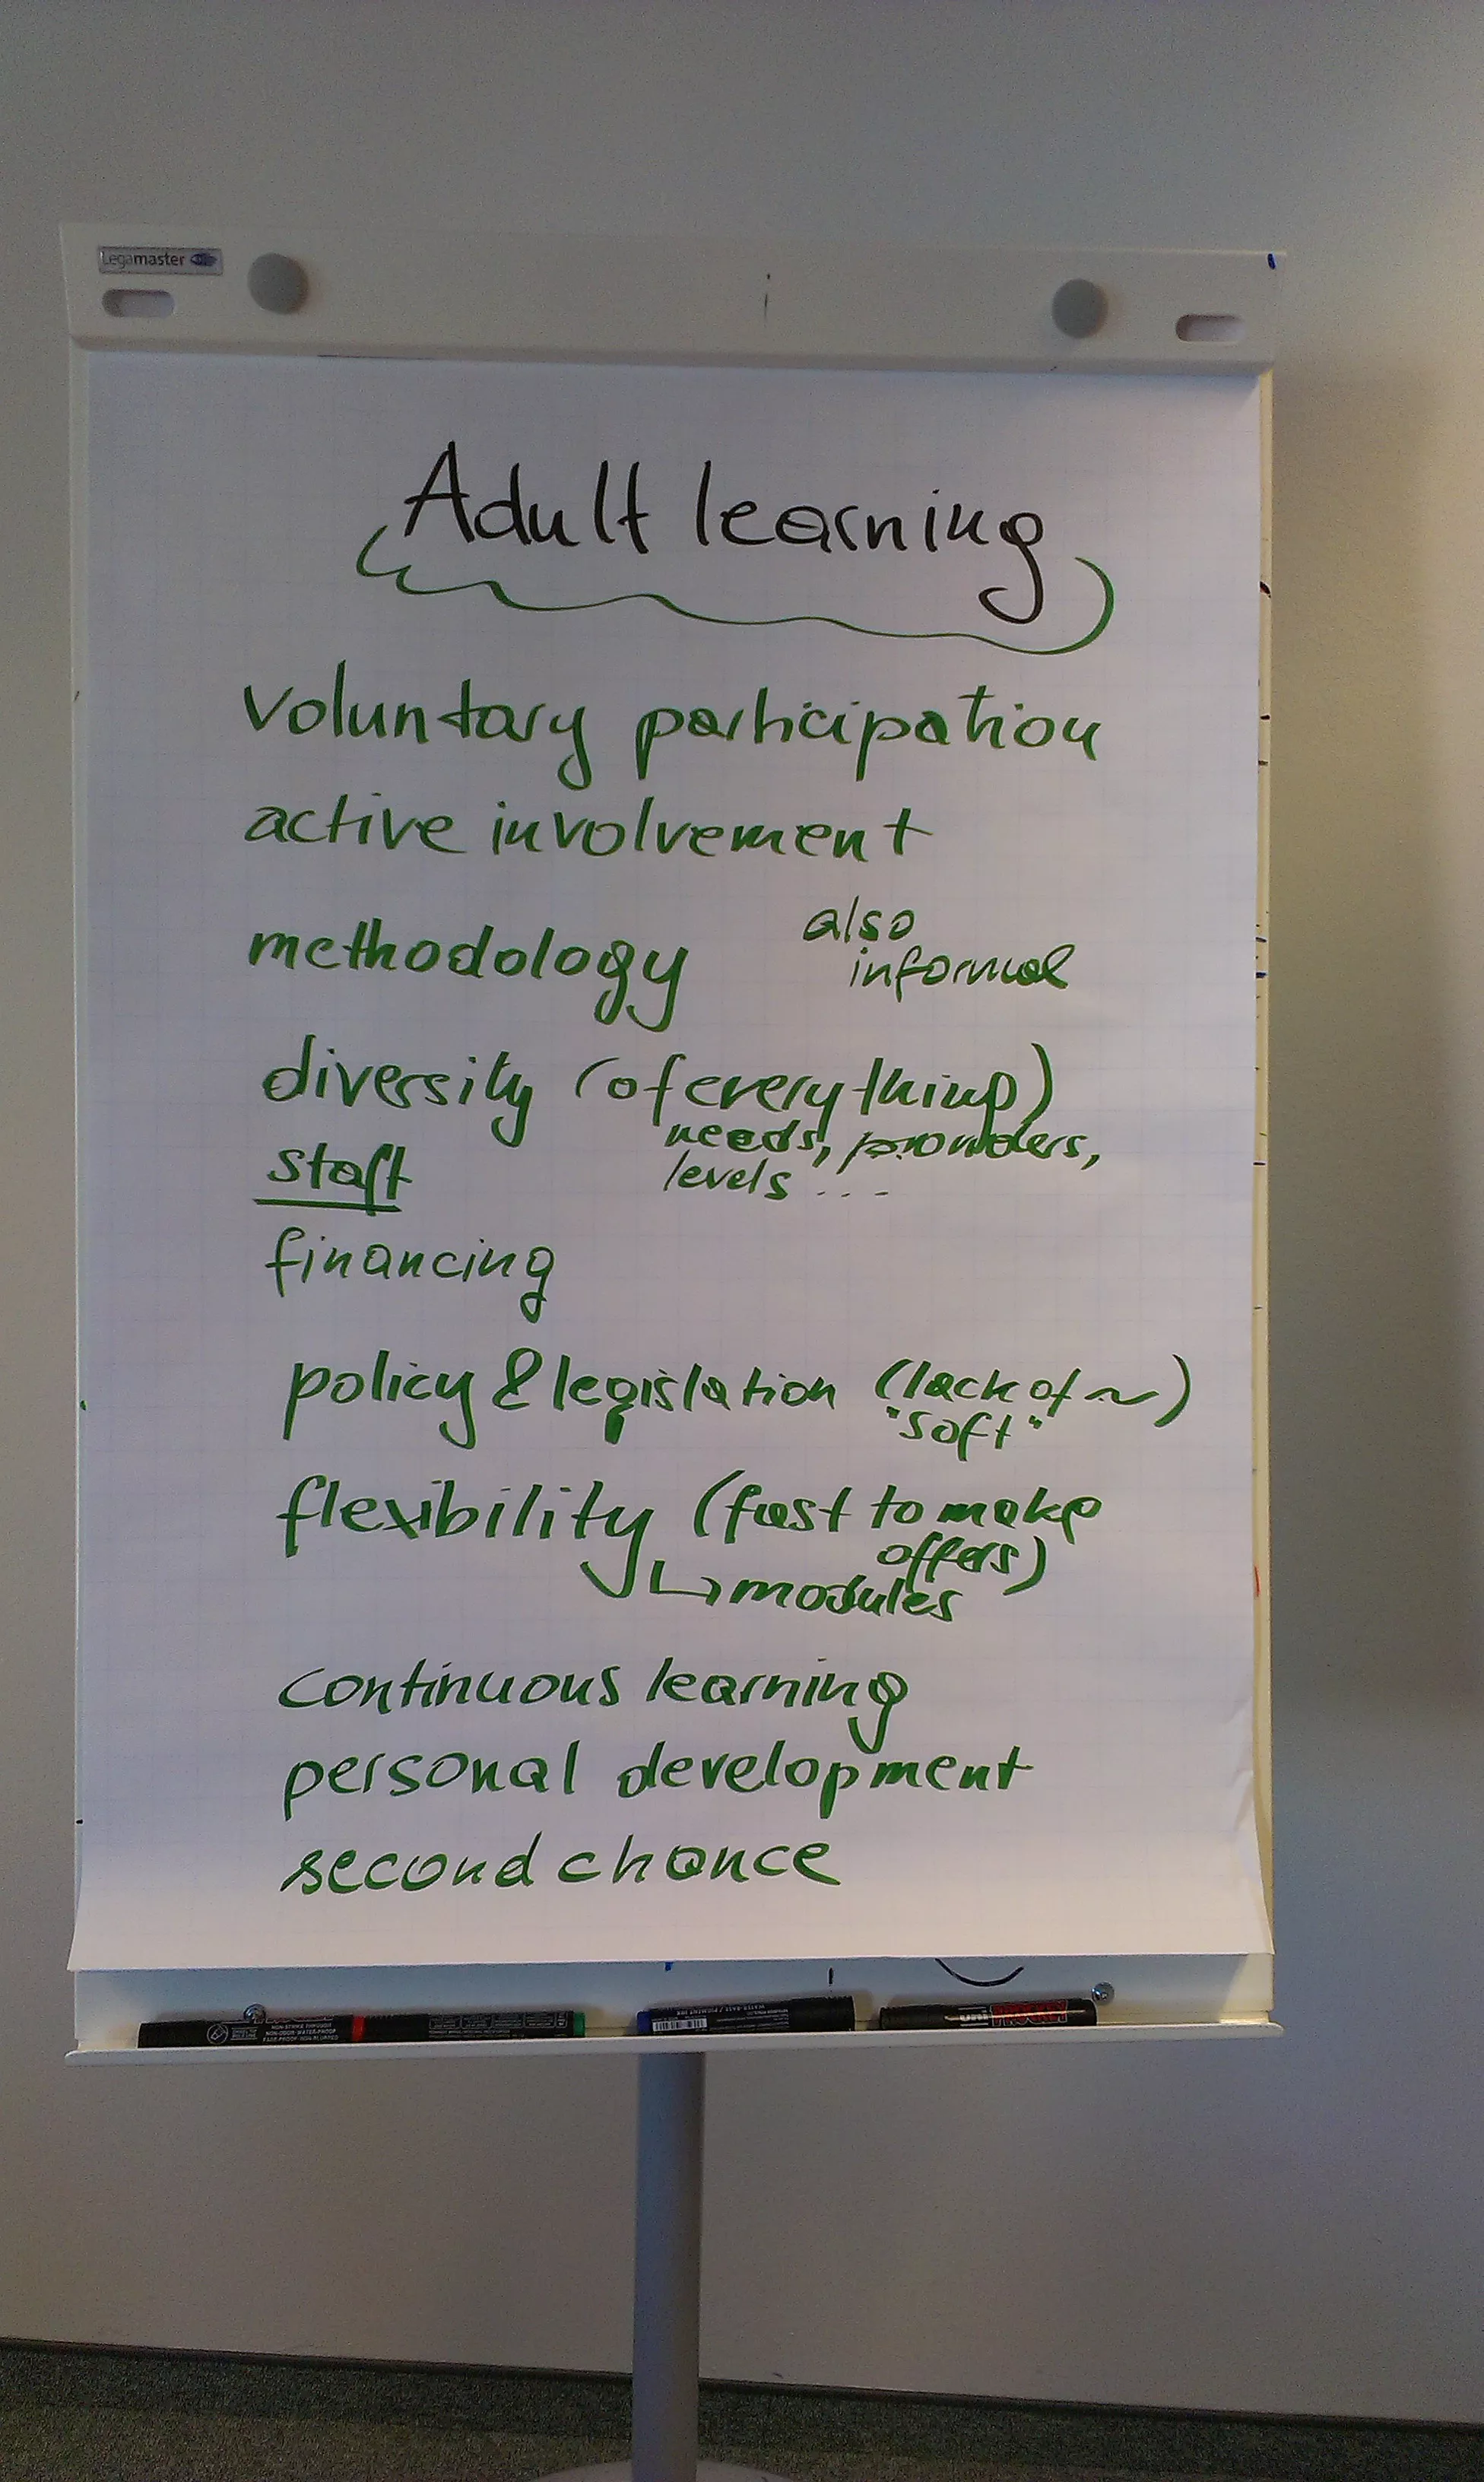 Legamaster
Adult learning
voluntary participation
active involvement
methodology also
informal
diversity (of everything)
needs, providers,
staff levels ...
financing
policy & legislation (lack of ~)
"soft"
flexibility (fast to make
offers)
↳ modules
continuous learning
personal development
second chance
uni PROCKEY